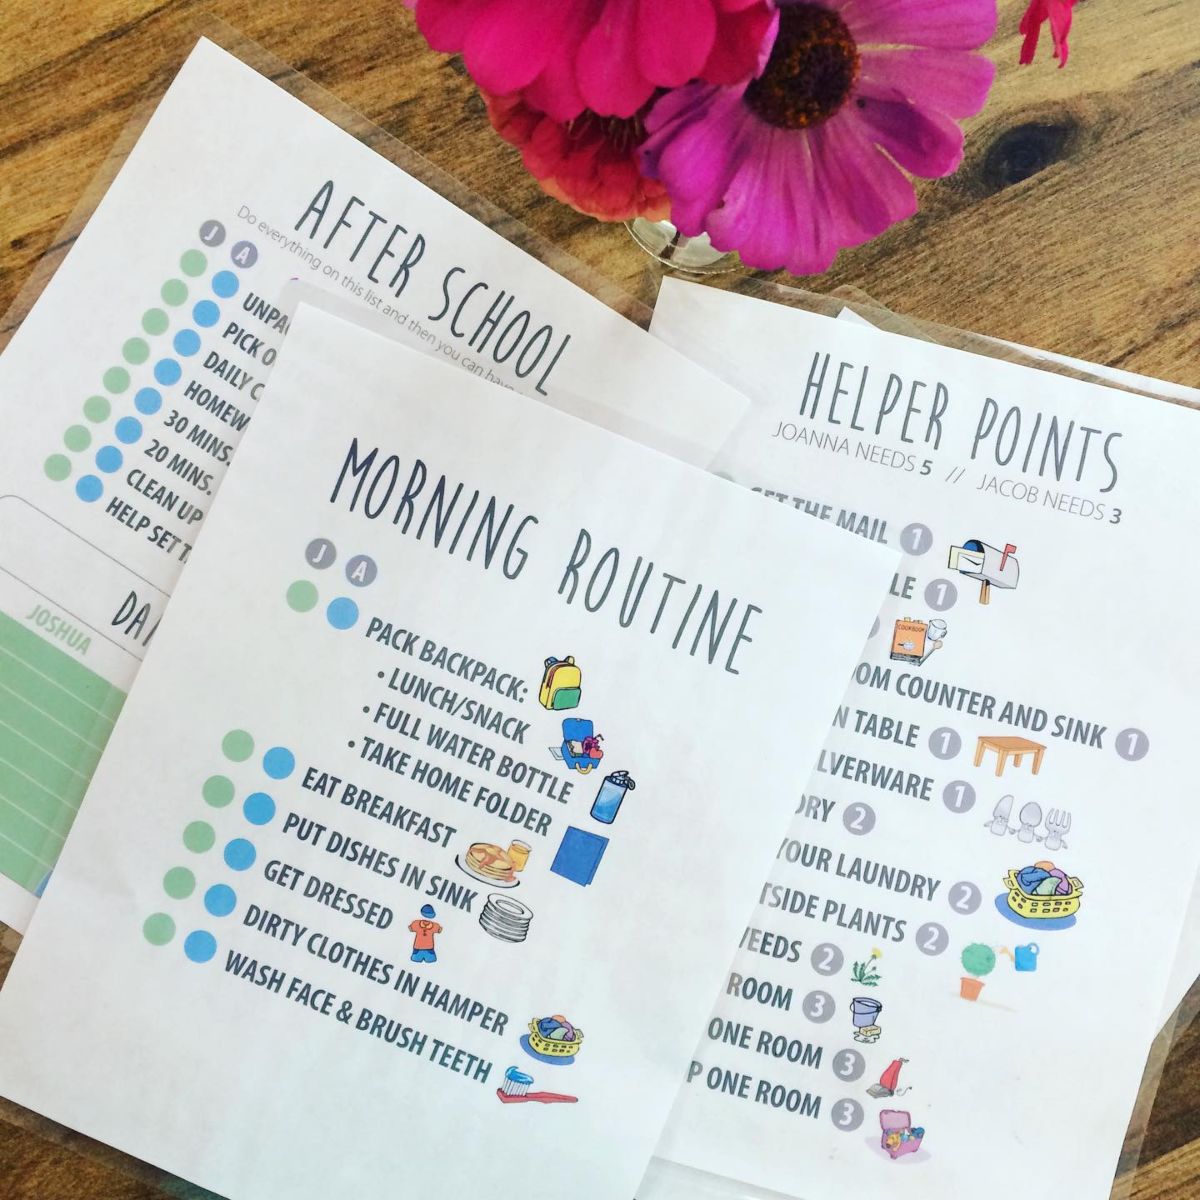 AFTER SCHOOL
Do everything on this list and then you can have
J A
PICK
DAILY
30 MINS.
20 MINS.
CLEAN UP
HELP SET
JOSHUA
MORNING ROUTINE
J A
PACK BACKPACK:
• LUNCH/SNACK
• FULL WATER BOTTLE
• TAKE HOME FOLDER
EAT BREAKFAST
PUT DISHES IN SINK
GET DRESSED
DIRTY CLOTHES IN HAMPER
WASH FACE & BRUSH TEETH
HELPER POINTS
JOANNA NEEDS 5 // JACOB NEEDS 3
GET THE MAIL 1
1
COOKBOOK
COUNTER AND SINK 1
TABLE 1
1
2
YOUR LAUNDRY 2
PLANTS 2
2
ROOM 3
ONE ROOM 3
ONE ROOM 3